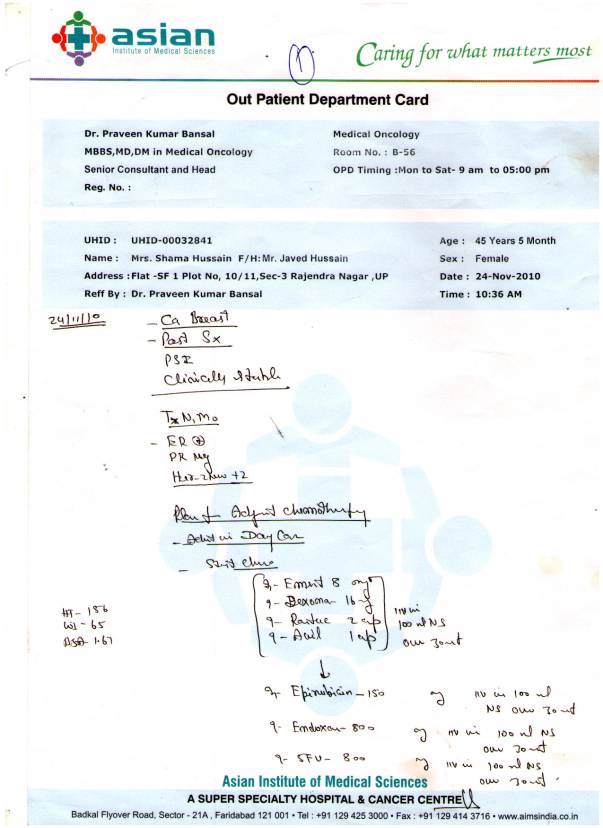 asian
Institute of Medical Sciences
1
Caring for what matters most
Out Patient Department Card
Dr. Praveen Kumar Bansal
MBBS,MD,DM in Medical Oncology
Senior Consultant and Head
Reg. No. :
Medical Oncology
Room No. : B-56
OPD Timing :Mon to Sat- 9 am to 05:00 pm
UHID : UHID-00032841
Name : Mrs. Shama Hussain F/H: Mr. Javed Hussain
Address : Flat -SF 1 Plot No, 10/11,Sec-3 Rajendra Nagar ,UP
Reff By : Dr. Praveen Kumar Bansal
Age : 45 Years 5 Month
Sex : Female
Date : 24-Nov-2010
Time : 10:36 AM
24/11/10
- Ca Breast
- Post Sx
Clinically stable
Tx N1 M0
- ER +
PR Neg
Her-2 neu +2
Plan for Adjut chemotherapy
- Admit in Day Care
- Start chemo
HT- 156
Wt- 65
BSA- 1.67
9- Emeset 8 mg
9- Dexona 16 mg
9- Rantac 2 amp
9- Avil 1 amp
IV in
100 ml NS
over 30 mt
↓
9- Epirubicin - 150 mg IV in 100 ml
NS over 30 mt
9- Endoxan - 800 mg IV in 100 ml NS
over 30 mt
9- 5FU - 800 mg IV in 100 ml NS
over 30 mt
Asian Institute of Medical Sciences
A SUPER SPECIALTY HOSPITAL & CANCER CENTRE
Badkal Flyover Road, Sector - 21A , Faridabad 121 001 • Tel : +91 129 425 3000 • Fax : +91 129 414 3716 • www.aimsindia.co.in